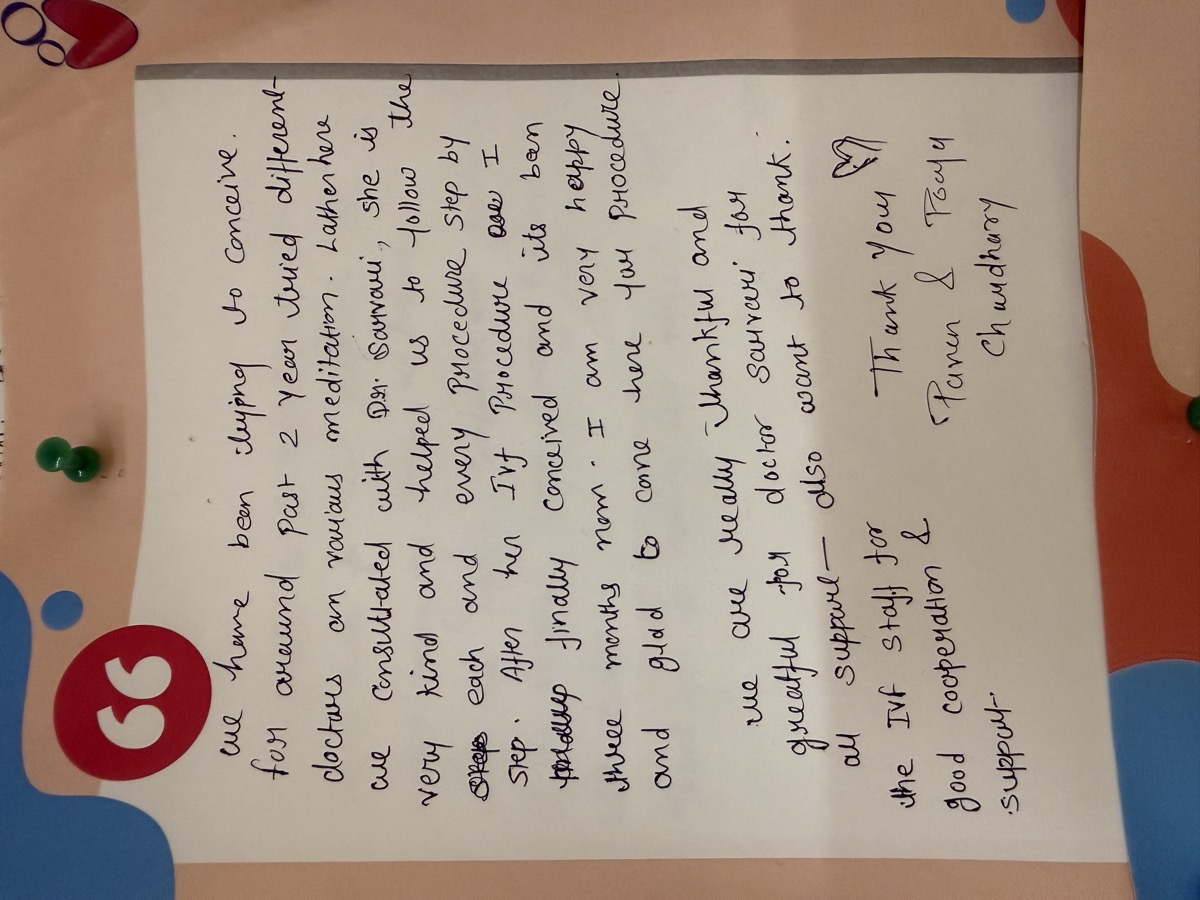 we have been trying to conceive.
for around past 2 year tried different
doctors an various meditation. Lather here
we consultated with Dr. Sarvari, she is
very kind and helped us to follow the
each and every procedure step by
step. After her Ivf procedure I
finally conceived and its been
three months now. I am very happy
and glad to come here for procedure.
we are really thankful and
greatful for doctor sarvari for
all support also want to thank.
the Ivf staff for
good cooperation &
support.
Thank you
&
Chaudhary